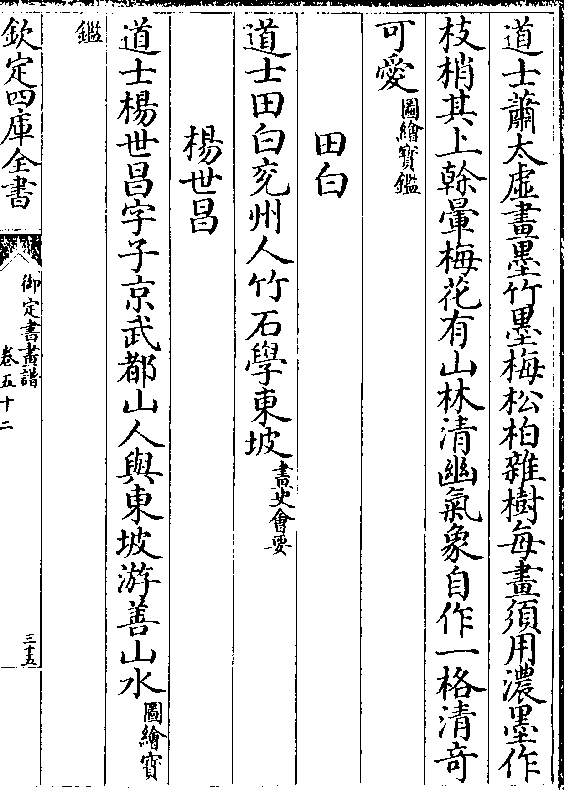 道士蕭太虛畫墨竹墨梅松柏雜樹每畫須用濃墨作
枝梢其上幹暈梅花有山林清幽氣象自作一格清竒
可愛圖繪寶鑑
田白
道士田白兖州人竹石學東坡畫史會要
楊世昌
道士楊世昌字子京武都山人與東坡游善山水圖繪寶
鑑
欽定四庫全書
御定書畫譜
卷五十二
三十五